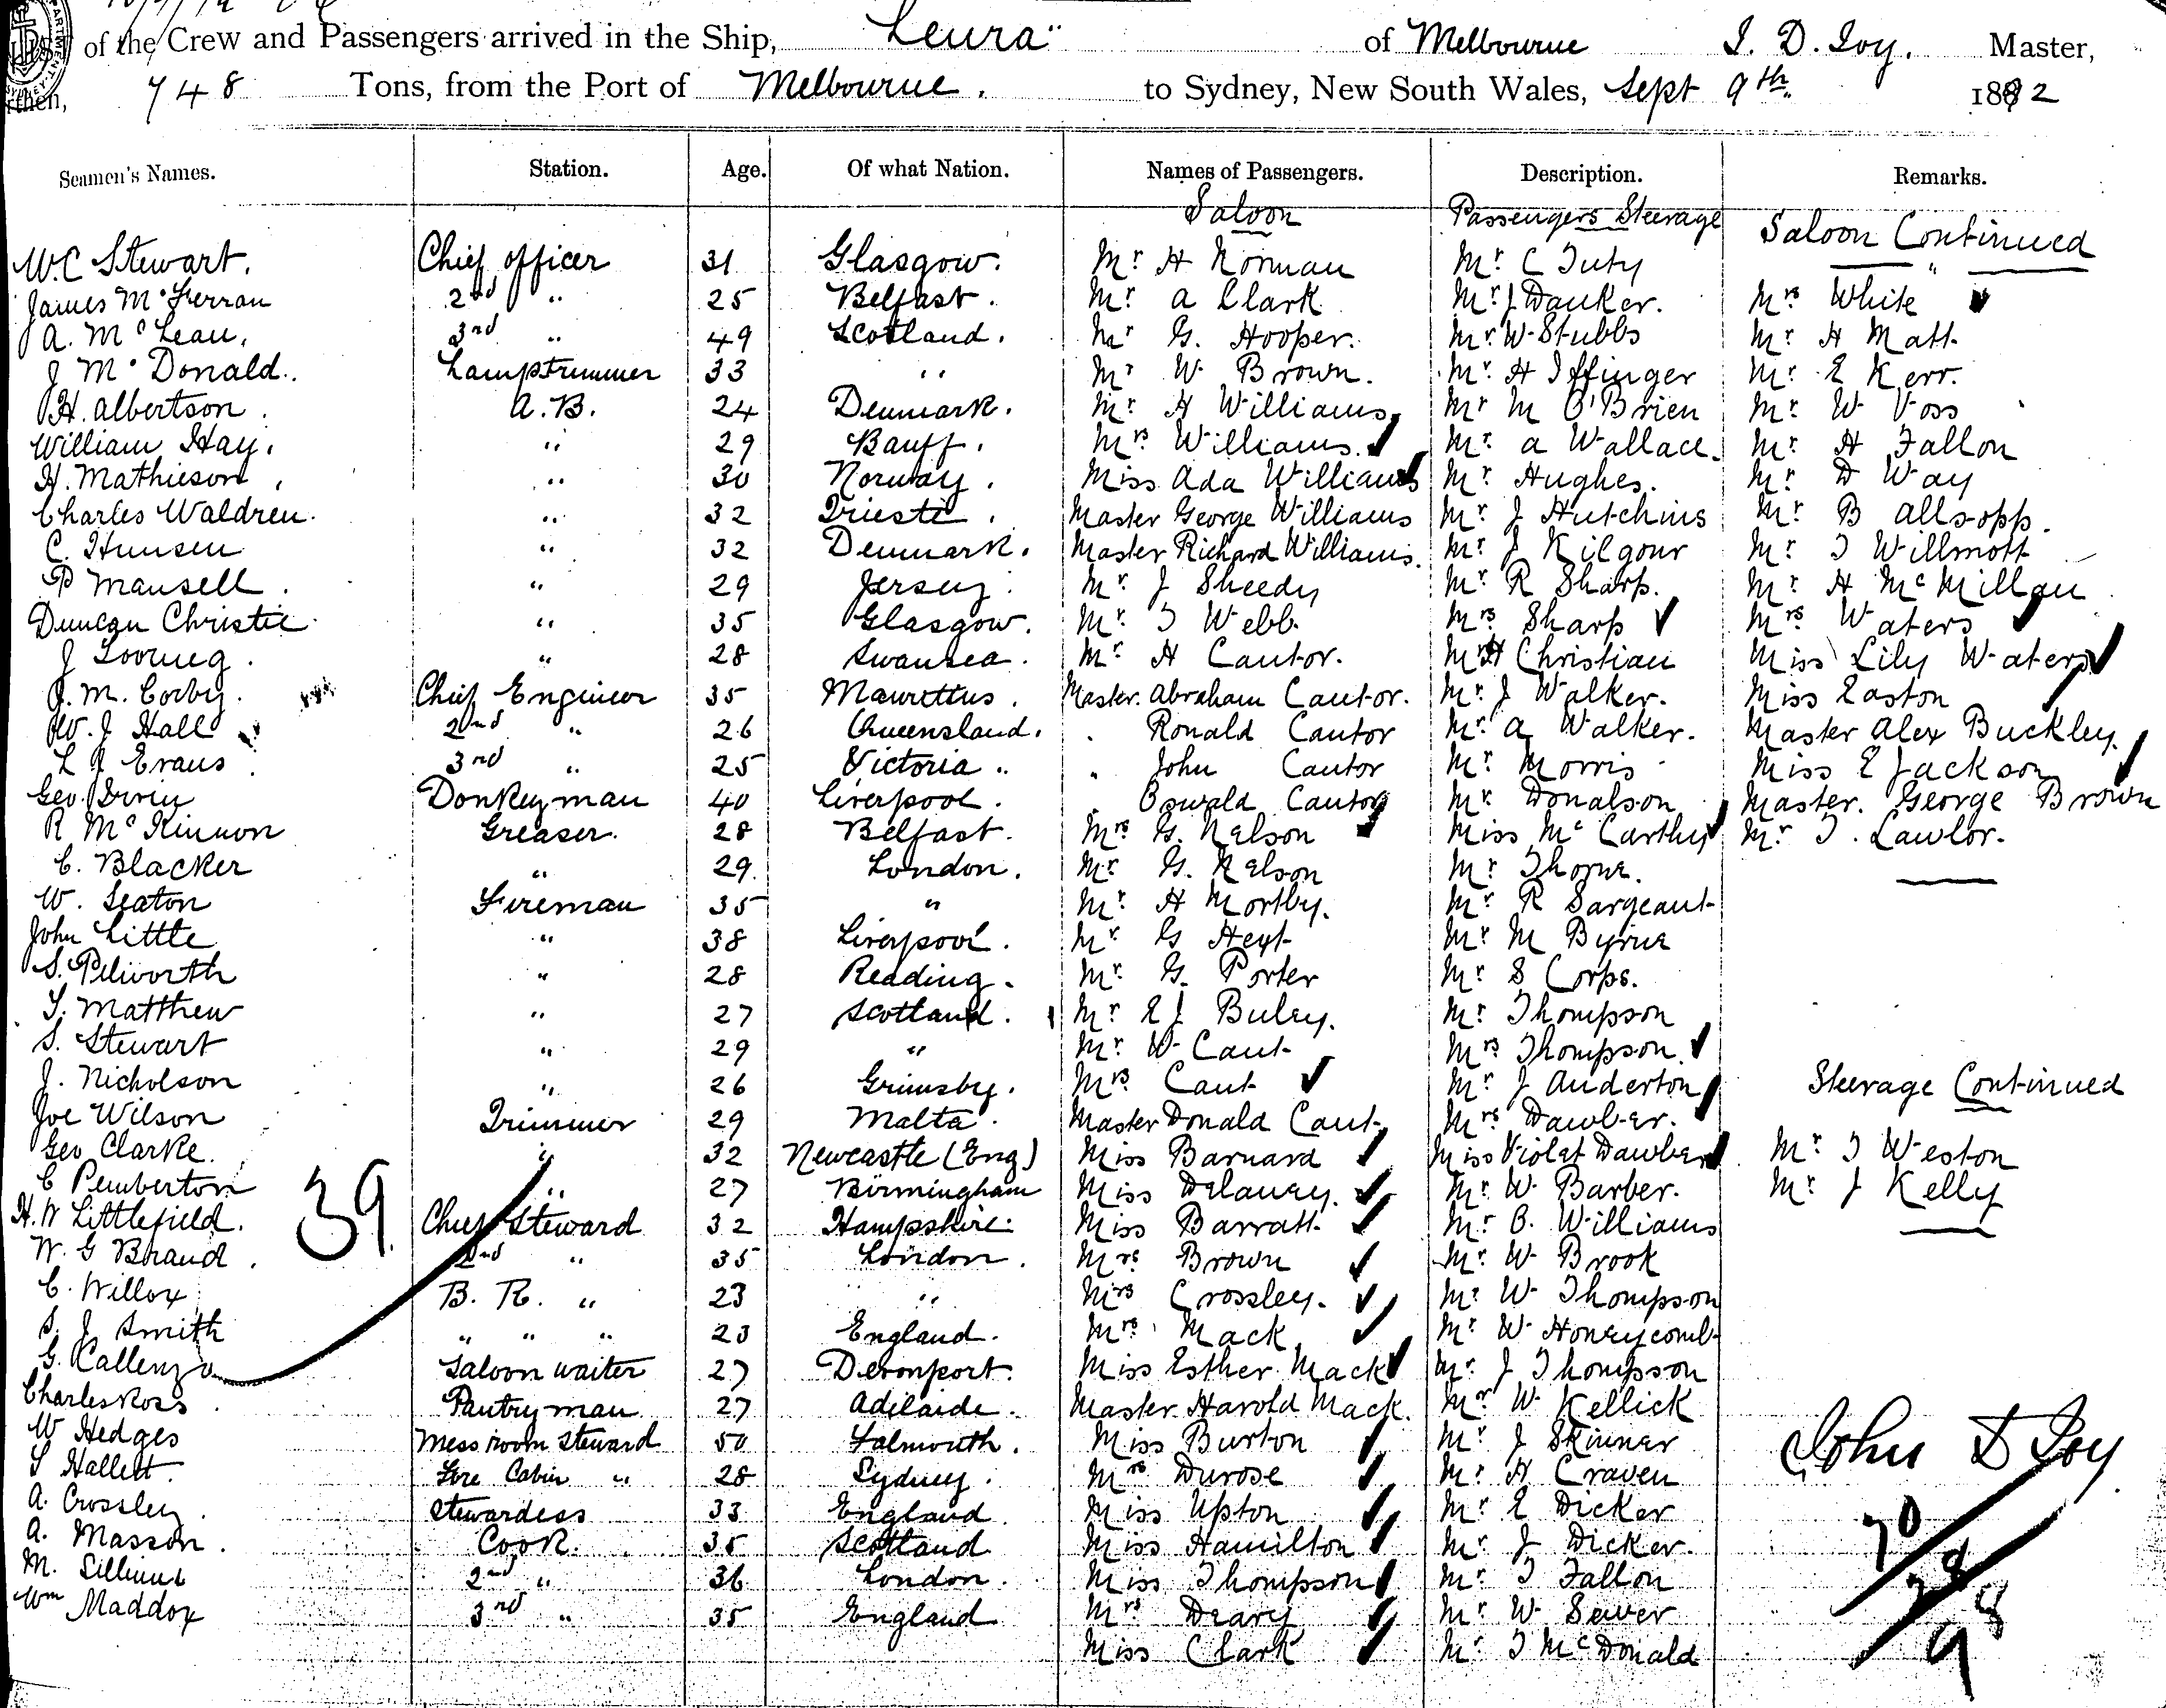 of the Crew and Passengers arrived in the Ship, Leura" of Melbourne J. D. Joy. Master,
748 Tons, from the Port of Melbourne. to Sydney, New South Wales, Sept 9th 1892
Seamen's Names. Station. Age. Of what Nation. Names of Passengers. Description. Remarks.
Saloon Passengers Steerage Saloon Continued
W.C Stewart. Chief officer 31 Glasgow. Mr H Norman Mr C Tuty
James Mc Ferran 2nd " 25 Belfast. Mr A Clark Mr J Dauker. Mrs White
A. Mc Lean. 3rd " 49 Scotland. Mr G. Hooper. Mr W Stubbs Mr H Matt
J Mc Donald. Lamptrimmer 33 " Mr W Brown. Mr H Iffinger Mr E Kerr.
H. Albertson. A.B. 24 Denmark. Mr H Williams Mr M O'Brien Mr W Voss
William Hay. " 29 Banff. Mrs Williams. Mr A Wallace. Mr H Fallon
H. Mathieson. " 30 Norway. Miss Ada Williams Mr Hughes. Mr D Way
Charles Waldren. " 32 Trieste. Master George Williams Mr J Hutchins Mr B Allsopp.
C. Hunsen " 32 Denmark. Master Richard Williams. Mr J Kilgour Mr T Willmott
P Mansell. " 29 Jersey. Mr J Sheedy Mr R Sharp. Mr H McMillan
Duncan Christie. " 35 Glasgow. Mr T Webb. Mrs Sharp Mrs Waters
J " 28 Swansea. Mr H Cantor. Mr H Christian Miss Lily Waters
J. M. Corby. Chief Engineer 35 Mauritius. Master. Abraham Cantor. Mr J Walker. Miss Easton
W. J Hall 2nd " 26 Queensland. " Ronald Cantor Mr A Walker. Master Alex Buckley.
L J Evans 3rd " 25 Victoria.. " John Cantor Mr Morris Miss E Jackson
Geo. Irvin Donkeyman 40 Liverpool. " Oswald Cantor Mr Donalson Master. George Brown
R McKinnon Greaser. 28 Belfast. Mrs G. Nelson Miss McCarthy Mr T. Lawlor.
C. Blacker " 29. London. Mr G. Nelson Mr Thorne.
W. Seaton Fireman 35 " Mr H Mortby. Mr R Sargeant
John Little " 38 Liverpool. Mr G Heyt Mr M Byrne
S. Pilworth " 28 Reading. Mr G. Porter Mr S Corps.
T. Matthew " 27 Scotland. Mr E J Buley. Mr Thompson
S. Stewart " 29 " Mr W Caut Mrs Thompson.
J. Nicholson " 26 Grimsby. Mrs Caut Mr J Anderton Steerage Continued
Joe Wilson Trimmer 29 Malta. Master Donald Caut. Mrs Dawber.
Geo Clarke. " 32 Newcastle (Eng) Miss Barnard Miss Violet Dawber Mr T Weston
C Pemberton " 27 Birmingham Miss Delaney. Mr W Barber. Mr J Kelly
H. W Littlefield. 39 Chief Steward 32 Hampshire. Miss Barratt Mr B. Williams
W. G Braud. 2nd " 35 London. Mrs Brown Mr W Brook
C. Willox B. R. " 23 " Mrs Crossley. Mr W Thompson
S. J Smith " " " 23 England. Mrs Mack Mr W Honeycomb
G. Kallenzo Saloon waiter 27 Devonport. Miss Esther Mack Mr J Thompson
Charles Ross. Pantryman 27 Adelaide. Master Harold Mack. Mr W Kellick
W Hedges Mess room Steward 50 Falmouth. Miss Burton Mr J Skinner John D Joy
S Hallett. Fore Cabin " 28 Sydney. Mrs Durose Mr H Craven
A. Crossley. Stewardess 33 England. Miss Upton Mr E Dicker 70
A. Masson. Cook. 35 Scotland Miss Hamilton Mr J Dicker. 28
M. 2nd " 36 London. Miss Thompson Mr T Fallon 98
Wm Maddox 3rd " 35 England Mrs Deary Mr W Sewer
Miss Clark Mr T McDonald